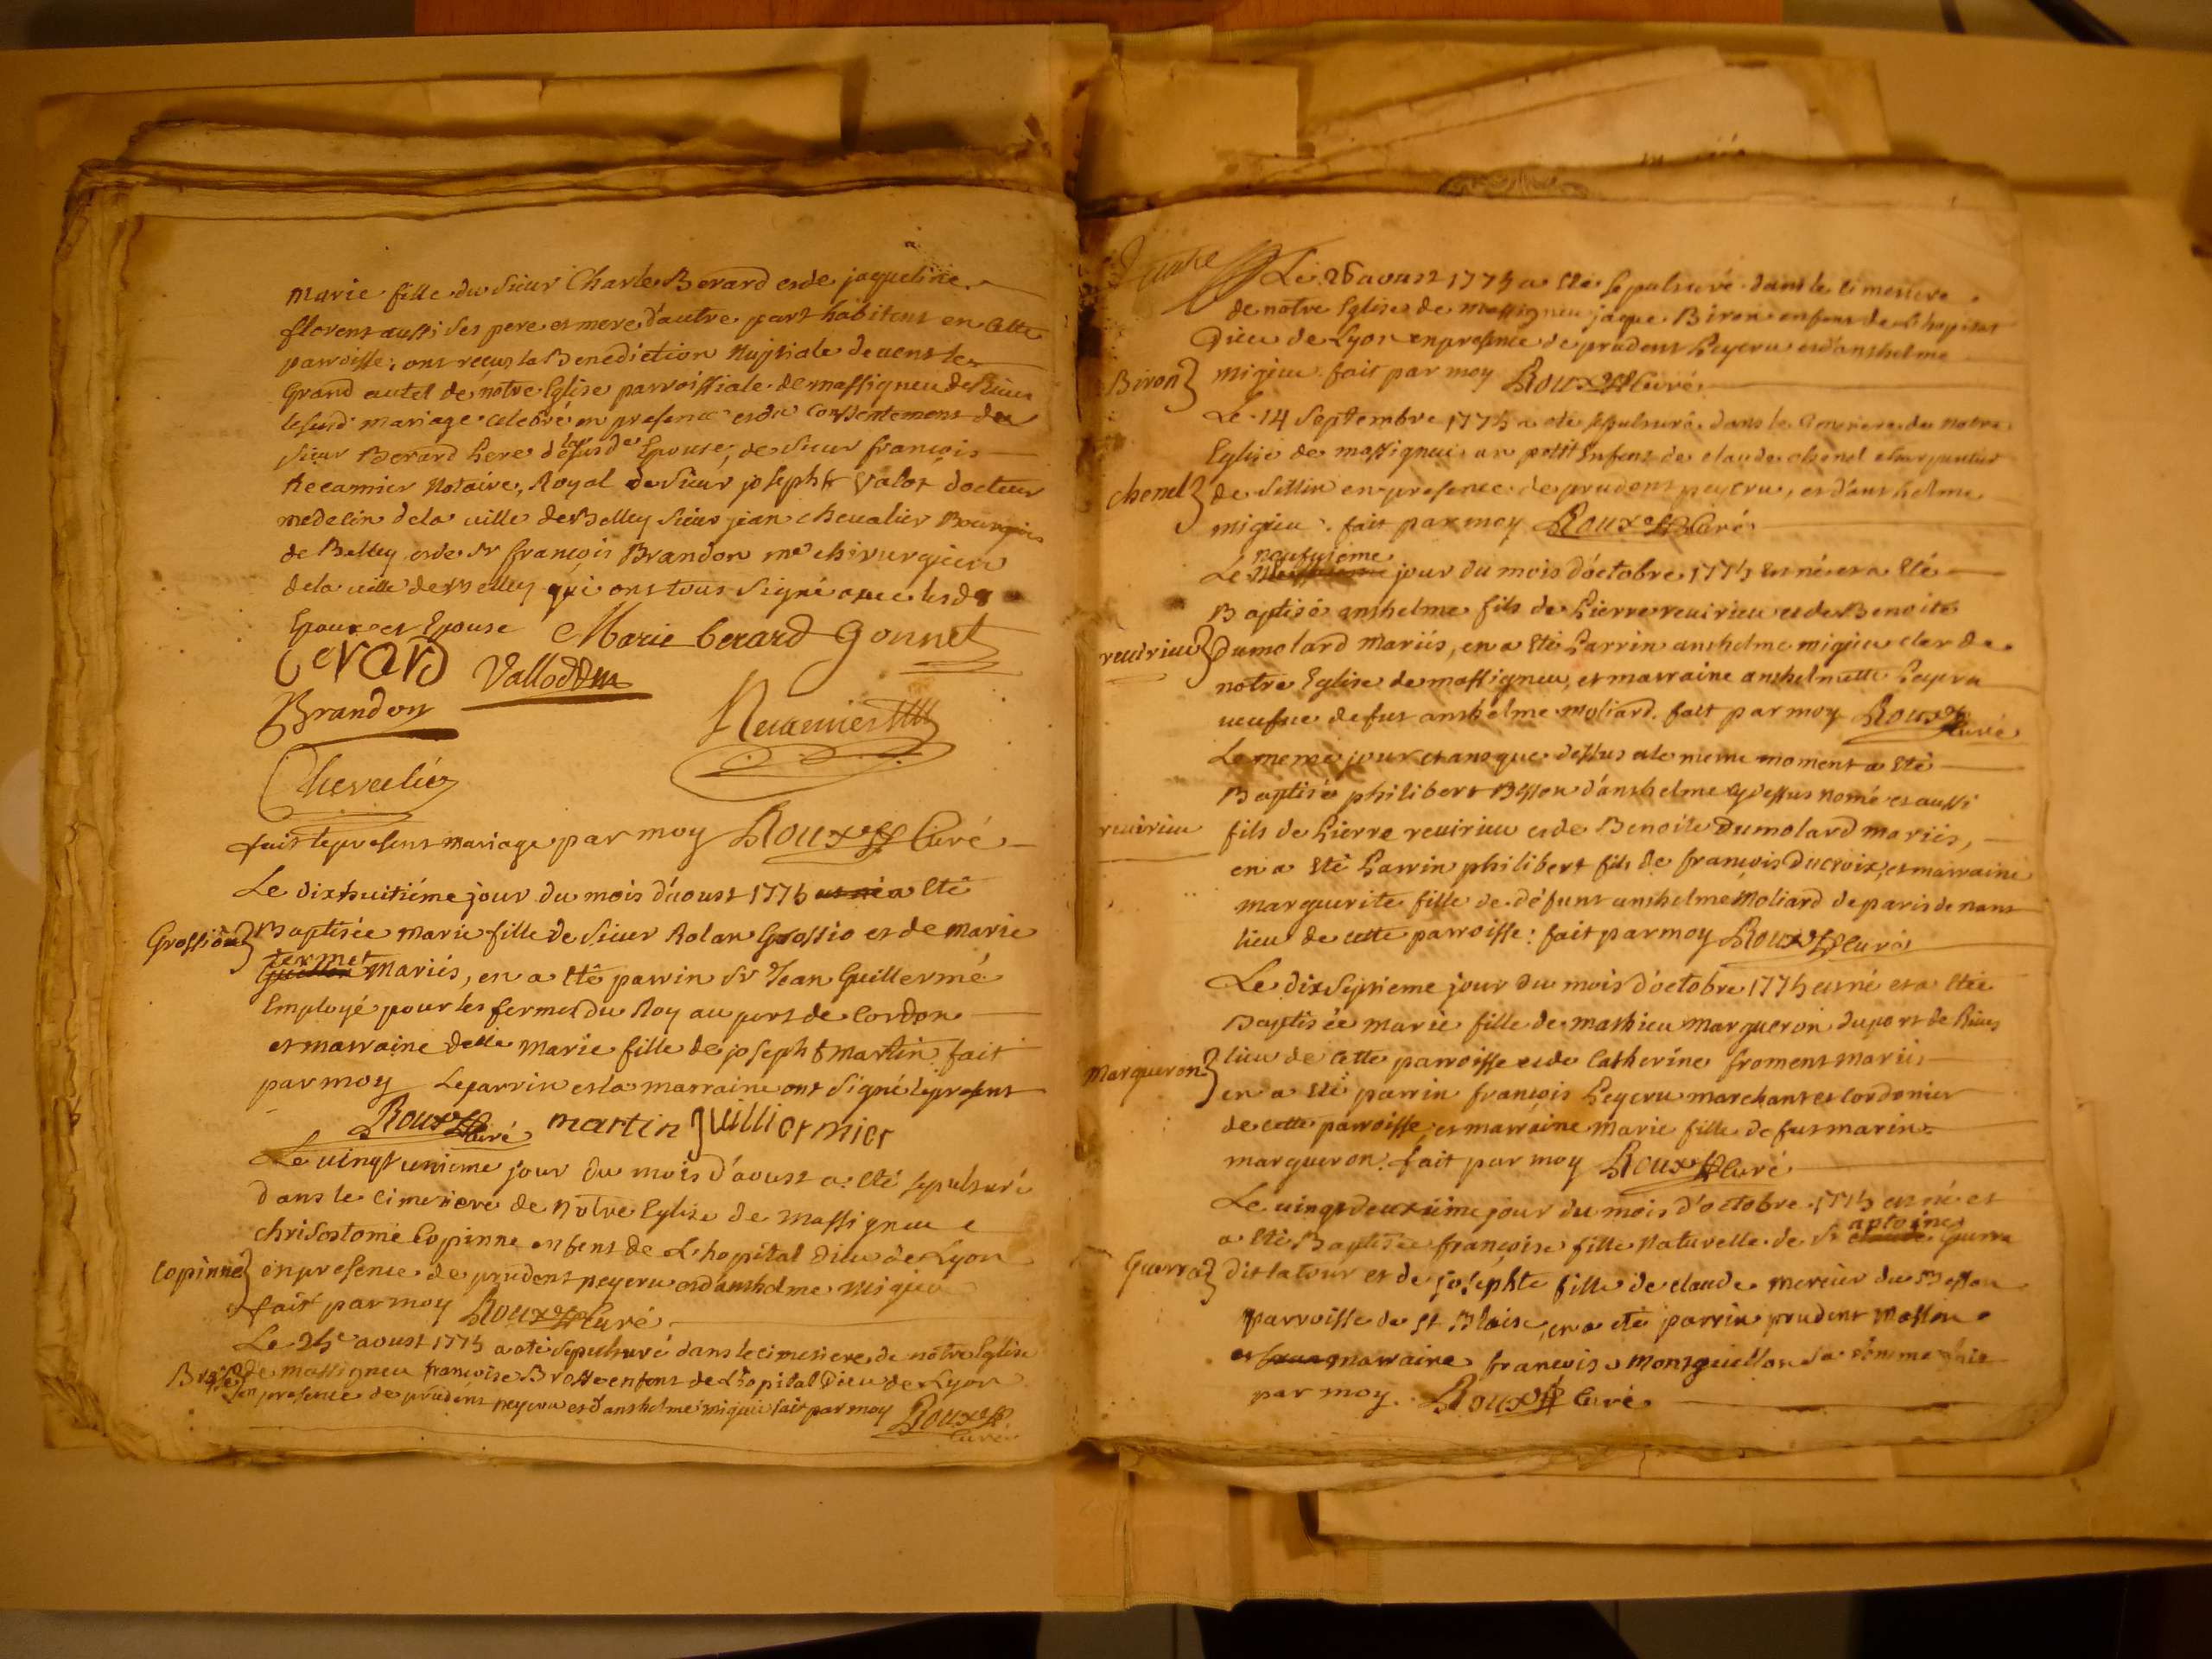 marie fille du sieur Charle Berard et de jaqueline
florent aussi ses pere et mere d'autre part habitent en cette
parroisse, ont reçus la Benediction Nuptiale devent le
Grand autel de nôtre Eglise parroissiale de massigneu de Rives
lesusd mariage celebré en presence et du consentement du
sieur Berard Pere de la susde Epouse, de sieur françois
Recamier Notaire Royal de sieur joseph Valot docteur
medecin de la ville de Belley sieur jean chevalier Bourgois
de Belley et de sr françois Brandon me chirurgien
de la ville de Belley qui ont tous signé avec lesds
Epoux et Epouse Marie berard Gonnet
Berard Vallod Dm
Brandon Recamier
Chevalier
fait le present mariage par moy Roux Curé
Le dixhuitiéme jour du mois d'aoust 1775 est né a eté
Grossio Baptisée marie fille de sieur Rolan Grossio et de marie
termet
mariés, en a eté parrin sr Jean Guillermé
Employé pour les fermes du Roy au port de Cordon
et marraine delle marie fille de joseph martin fait
par moy Le parrin et la marraine ont signé le present
Roux Curé martin guilliermier
Le vingt unieme jour du mois d'aoust a eté sepulturé
dans le cimetiere de Nôtre Eglise de Massigneu
chrisostome Copinne enfent de L'hopital Dieu de Lyon
Copinne en presence de prudent peyeru et d'anthelme Migieu
fait par moy Roux Curé
Le 25e aoust 1775 a eté sepulturé dans le cimetiere de nôtre Eglise
de massigneu françoise Brosse enfent de L'hopital Dieu de Lyon
en presence de prudent peyeru et d'anthelme migieu fait par moy Roux
Curé
Le 26 aoust 1775 a eté sepulturé dans le cimetiere
de notre Eglise de massigneu jaque Biron enfent de L'hopital
Dieu de Lyon en presence de prudent Peyeru et d'anthelme
Biron migieu fait par moy Roux Curé
Le 14 septembre 1775 a eté sepulturé dans le Cimetiere de notre
Eglise de massigneu un petit Enfent de claude chenel charpentier
chenel de en presence de prudent peyeru, et d'anthelme
migieu fait par moy Roux Curé
neufvieme
Le jour du mois d'octobre 1775 est né et a eté
Baptisé anthelme fils de Pierre revirieu et de Benoite
revirieu Dumolard mariés, en a eté Parrin anthelme migieu clerc de
notre Eglise de massigneu, et marraine anthelmette Peyeru
veufve de fut anthelme moliard fait par moy Roux
Curé
Le meme jour et an que dessus et le meme moment a eté
Baptisé philibert Besson d'anthelme cydessus nomé et aussi
revirieu fils de Pierre revirieu et de Benoite Dumolard mariés,
en a eté Parrin philibert fils de françois Ducroix, et marraine
marguerite fille de défunt anthelme Moliard de
lieu de cette parroisse: fait par moy Roux Curé
Le dix septieme jour du mois d'octobre 1775 est né et a eté
Baptisée marie fille de mathieu margueron du port de Rives
margueron lieu de cette parroisse et de Catherine froment mariés
en a eté parrin françois Peyeru marchant et Cordonier
de cette parroisse, et marraine marie fille de fut marin
margueron. fait par moy Roux Curé
Le vingt deuxiéme jour du mois d'octobre 1775 est né et
antoine
a eté Baptisée françoise fille Naturelle de sr claude Guerra
Guerra dit latour et de josephte fille de claude mercier du Besson
parroisse de St Blaise, en a eté parrin prudent Masson
et marraine françoise montguillon sa femme fait
par moy. Roux Curé